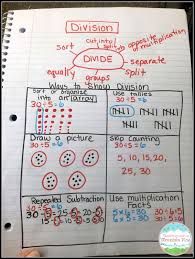 Division
sort
cut into
split
opposite of multiplication
DIVIDE
separate
equally
groups
split
Ways to show Division
Sort or organize into an array
30÷5=6
Use tallies
30÷5=6
Draw a picture
30÷5=6
Skip Counting
30÷5=6
5, 10, 15, 20,
25, 30
Repeated Subtraction
30÷5=6
Use multiplication Facts
5×6=30
6×5=30
30÷5=6
30÷6=5